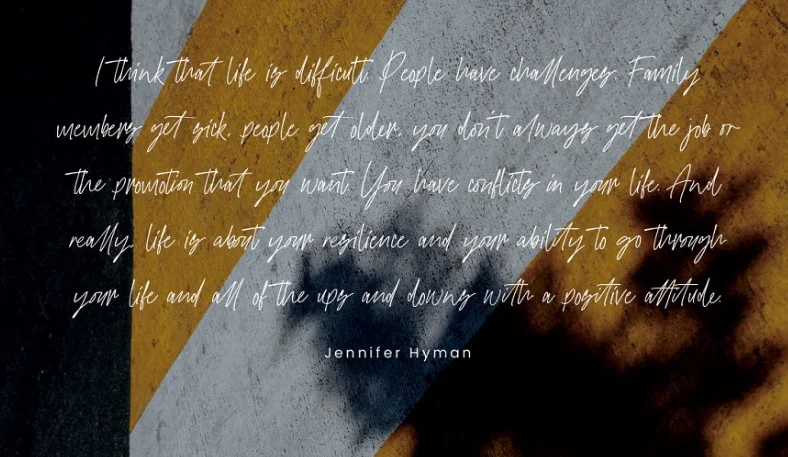 I think that life is difficult. People have challenges. Family
members get sick, people get older, you don't always get the job or
the promotion that you want. You have conflicts in your life. And
really, life is about your resilience and your ability to go through
your life and all of the ups and downs with a positive attitude.
Jennifer Hyman